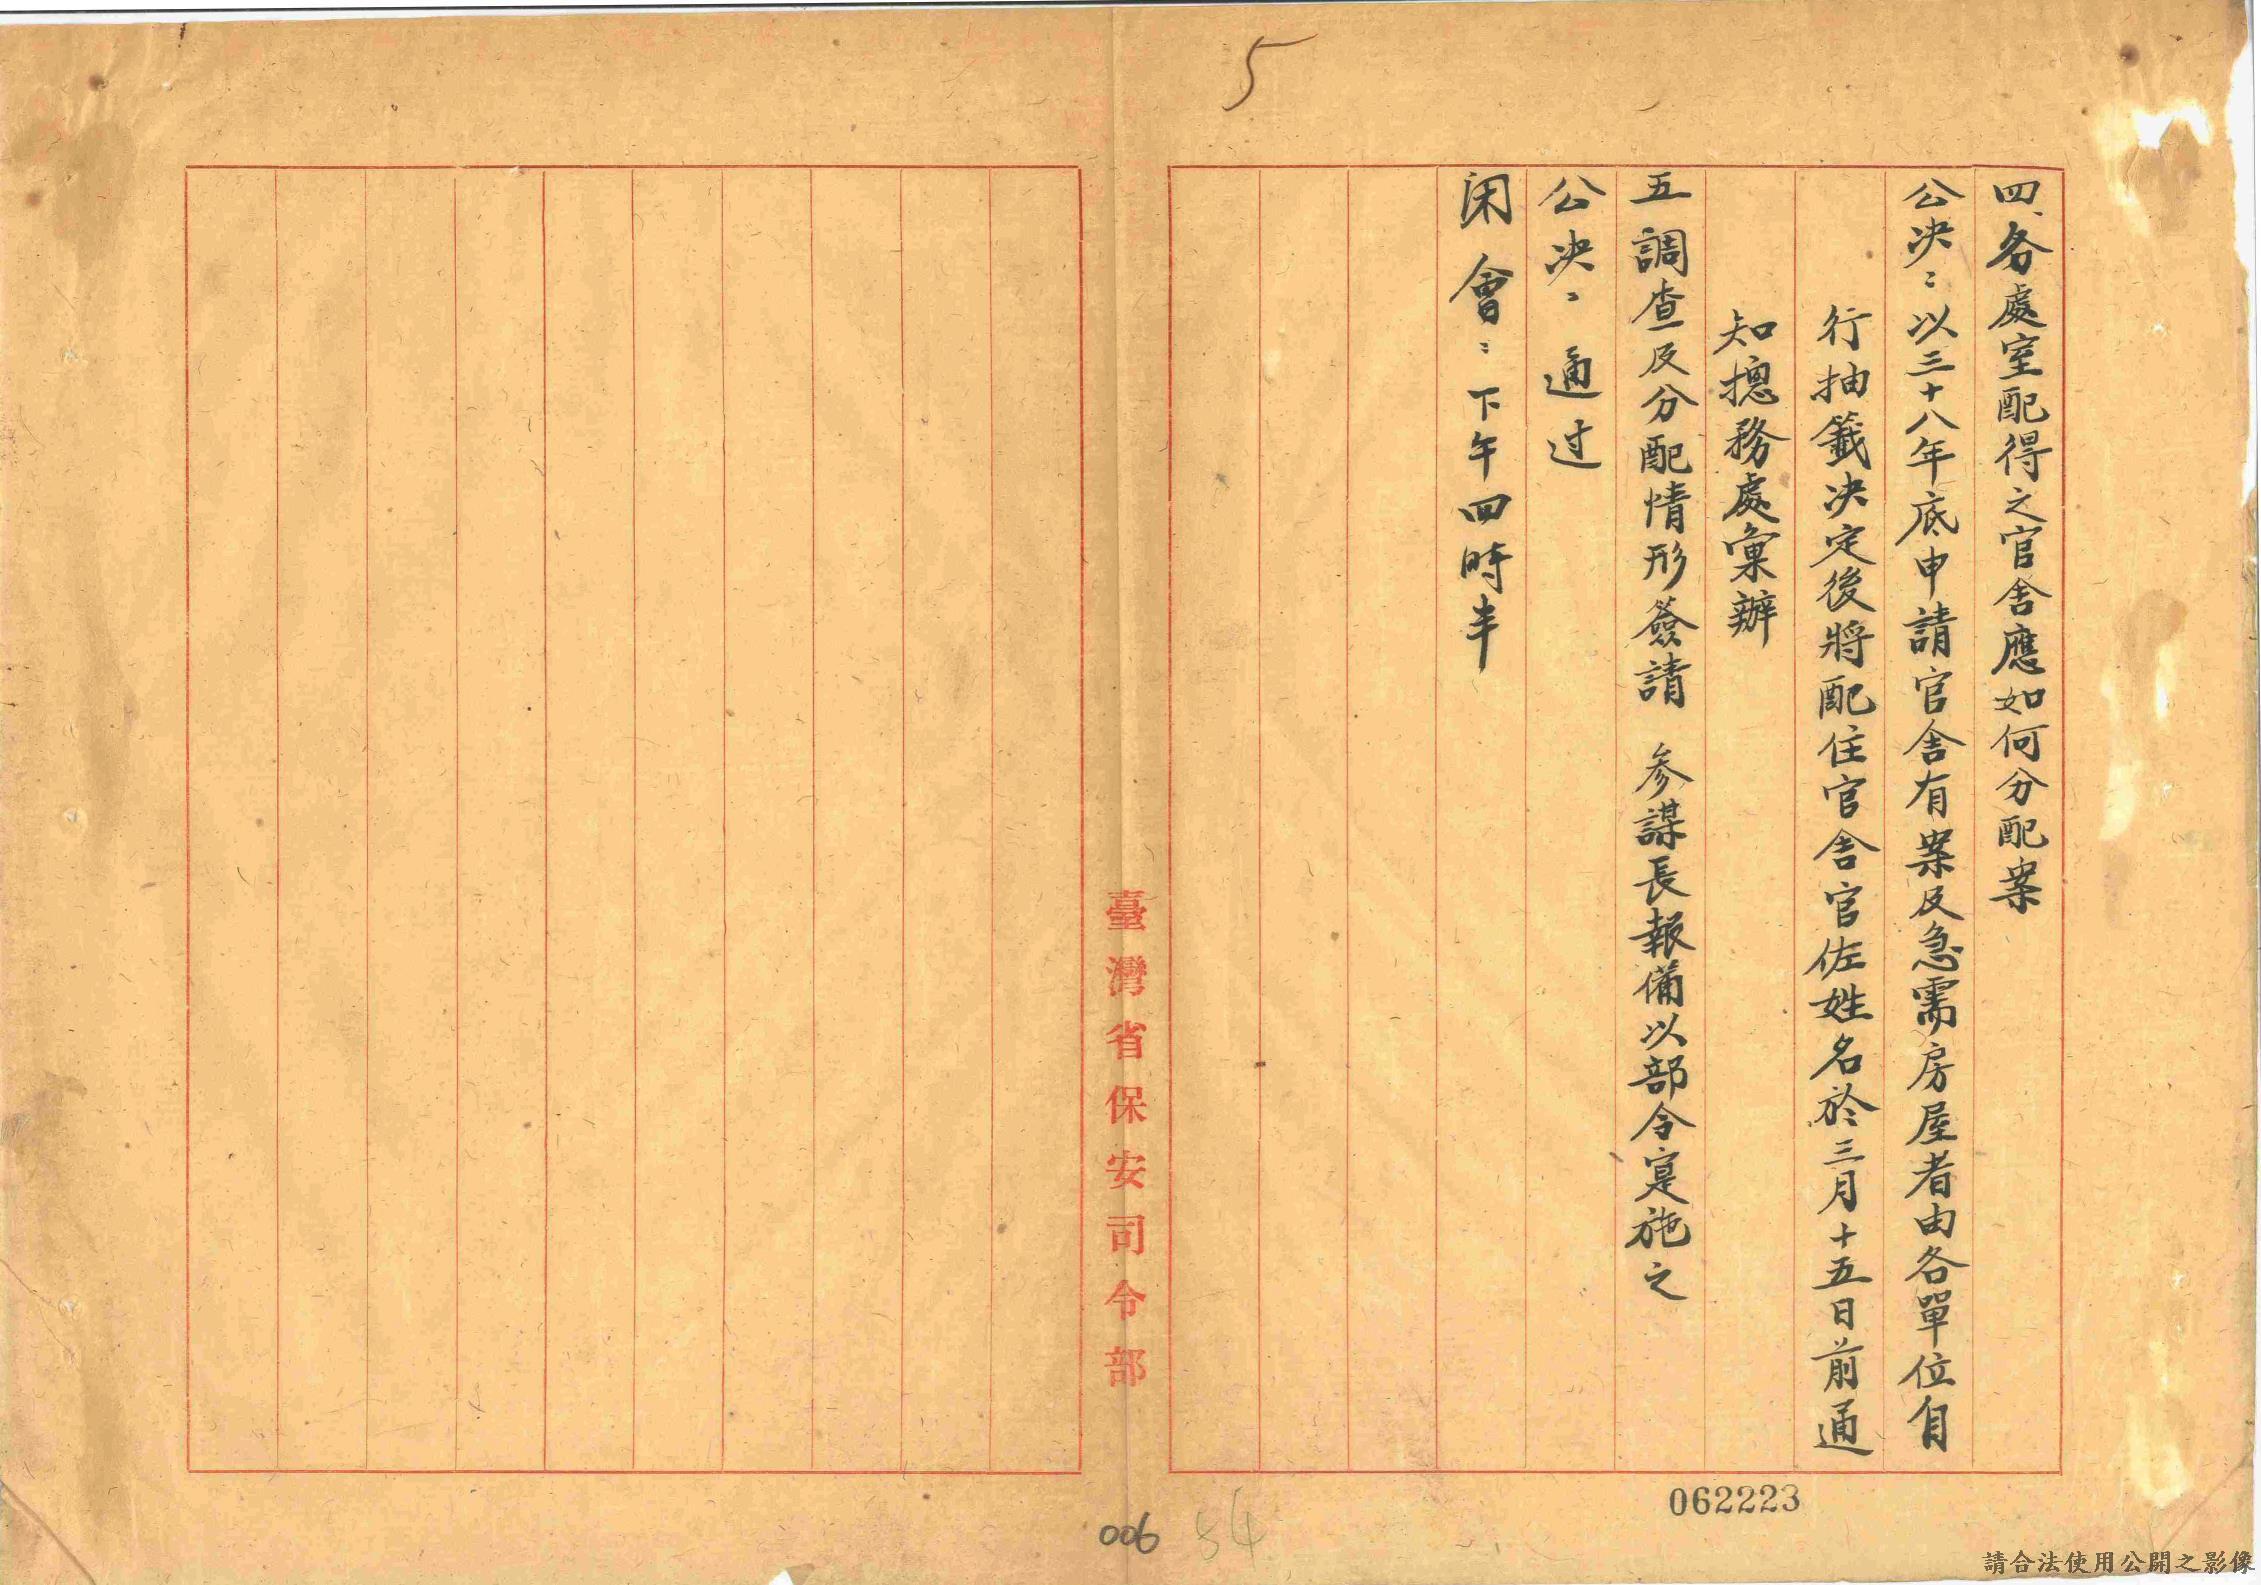 5
四、各處室配得之官舍應如何分配案
公决：以三十八年底申請官舍有案及急需房屋者由各單位自
行抽籤决定後將配住官舍官佐姓名於三月十五日前通
知摠務處彙辦
五調查及分配情形簽請 参謀長報備以部令寔施之
公决、通过
闭會：下午四時半
臺灣省保安司令部
062223
006
54
請合法使用公開之影像